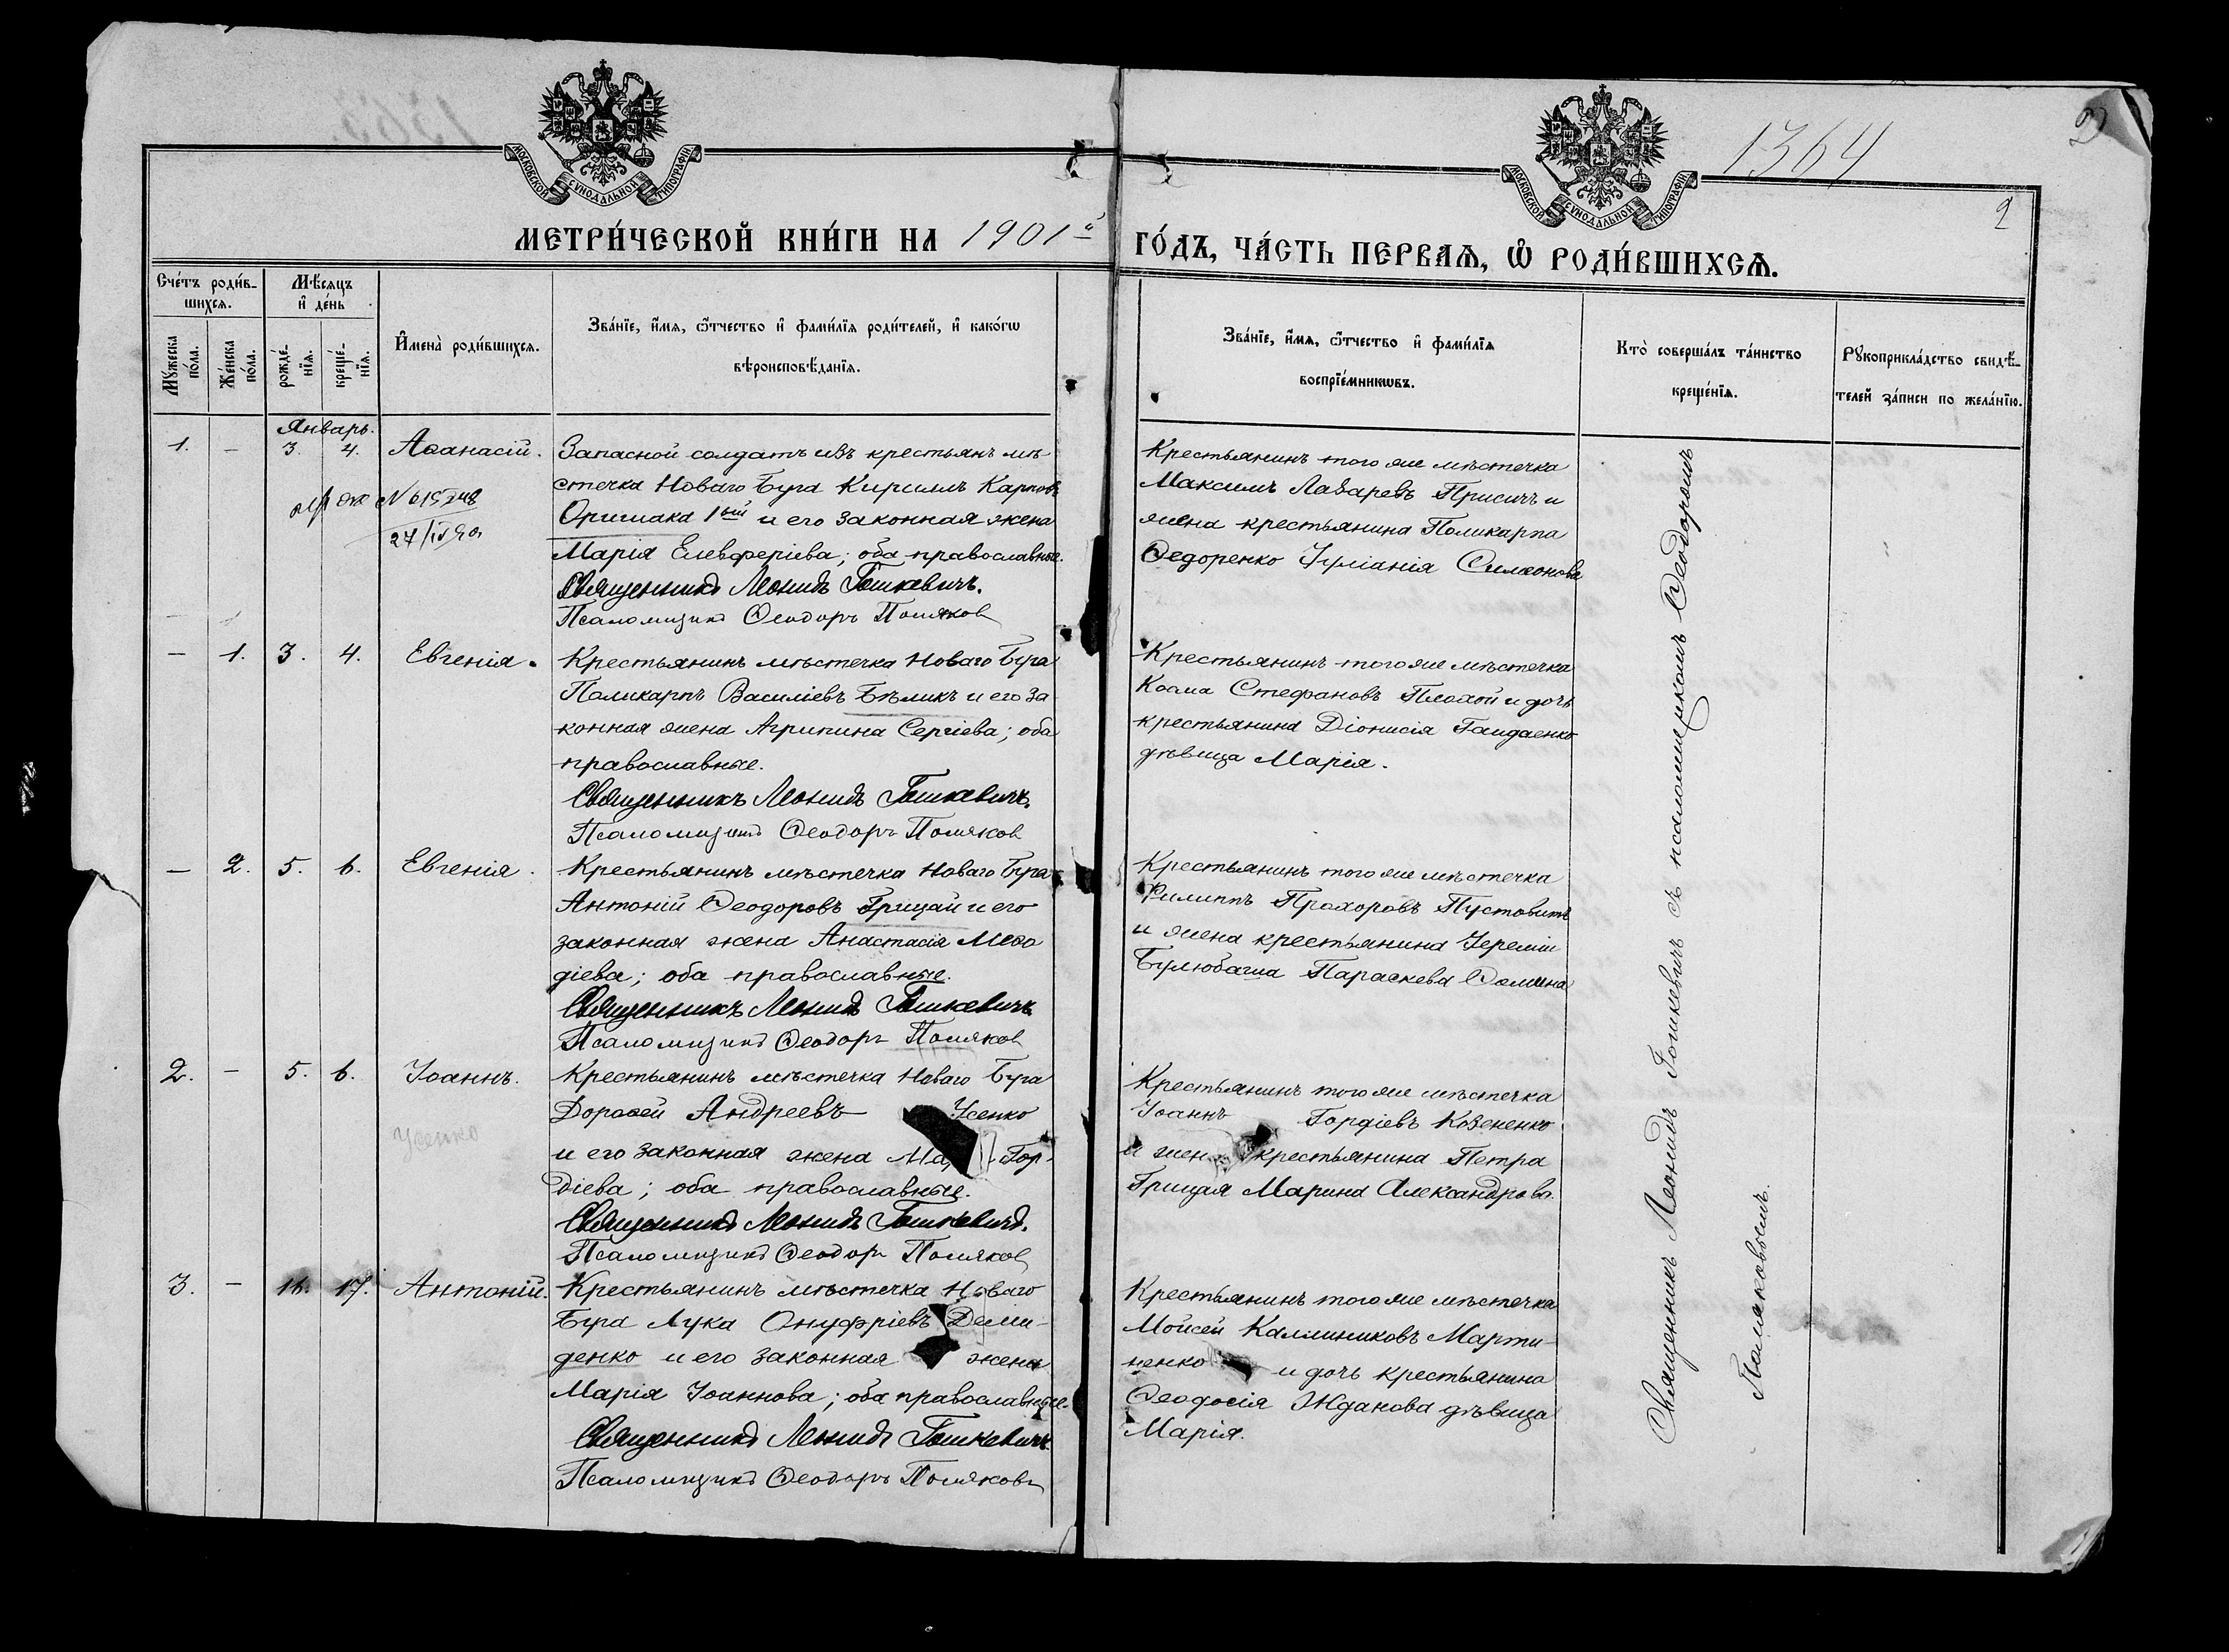 1364
2
2
МОСКОВСКОЙ СѴНОДАЛЬНОЙ ТИПОГРАФІИ
МОСКОВСКОЙ СѴНОДАЛЬНОЙ ТИПОГРАФІИ
МЕТРИ́ЧЕСКОЙ КНИ́ГИ НА 1901й ГО́ДЪ, ЧА́СТЬ ПЕРВАѦ, Ѽ РОДИ́ВШИХСѦ.
Сче́тъ роди́в-
шихсѧ.
Мѣ́сѧцъ
и҆ де́нь
Мꙋжеска по́ла.
Же́нска по́ла.
рожде́-
нїѧ.
креще́-
нїѧ.
И҆мена̀ роди́вшихсѧ.
Зва́нїе, и҆́мѧ, ѻ҆́тчество и҆ фамѝлїѧ роди́телей, и҆ како́гѡ
вѣроисповѣ́данїѧ.
Зва́нїе, и҆́мѧ, ѻ҆́тчество и҆ фами́лїѧ
воспрїе́мникѡвъ.
Кто̀ соверша́лъ та́инство
креще́нїѧ.
Рꙋкоприкла́дство свидѣ́-
телей за́писи по жела́нїю.
Январь.
1. – 3. 4. Аѳанасій.
Запасной солдатъ изъ крестьянъ мѣ
стечка Новаго Буга Кириллъ Карповъ
Оришака 1ый и его законная жена
Марія Елевферіева; оба православные.
Священникъ Леонидъ Гошкевичъ.
Псаломщикъ Ѳеодоръ Поляков
Крестьянинъ того же мѣстечка
Максимъ Лазаревъ Присичъ и
жена крестьянина Поликарпа
Ѳедоренко Іуліанія Симеонова
– 1. 3. 4. Евгенія.
Крестьянинъ мѣстечка Новаго Буга
Поликарпъ Василіевъ Бѣликъ и его за
конная жена Агрипина Сергіева; оба
православные.
Священникъ Леонидъ Гошкевичъ.
Псаломщикъ Ѳеодоръ Поляков
Крестьянинъ того же мѣстечка
Косма Стефановъ Плохой и дочь
крестьянина Діонисія Гайдаенко
дѣвица Марія.
– 2. 5. 6. Евгенія.
Крестьянинъ мѣстечка Новаго Буга
Антоній Ѳеодоровъ Грицай и его
законная жена Анастасія Меѳо
діева; оба православные.
Священникъ Леонидъ Гошкевичъ
Псаломщикъ Ѳеодоръ Поляков
Крестьянинъ того же мѣстечка
Филиппъ Прохоровъ Пустовитъ
и жена крестьянина Іереміи
Булюбаша Параскева Ѳомина
2. – 5. 6. Іоаннъ.
Усенко
Крестьянинъ мѣстечка Новаго Буга
Дороѳей Андреевъ Усенко
и его законная жена Мар Гор-
діева; оба православные.
Священникъ Леонидъ Гошкевичъ.
Псаломщикъ Ѳеодоръ Поляков
Крестьянинъ того же мѣстечка
Іоаннъ Гордіевъ Козененко
и жен крестьянина Петра
Грицая Марина Александрова.
3. – 16. 17. Антоній.
Крестьянинъ мѣстечка Новаго
Буга Лука Онуфріевъ Деми-
денко и его законная жена
Марія Іоаннова; оба православные.
Священникъ Леонидъ Гошкевичъ.
Псаломщикъ Ѳеодоръ Поляковъ
Крестьянинъ того же мѣстечка
Мойсей Каллиниковъ Марти-
ненко и дочь крестьянина
Ѳеодосія Жданова дѣвица
Марія.
Священникъ Леонидъ Гошкевичъ съ псаломщикомъ Ѳеодоромъ
Поляковымъ.